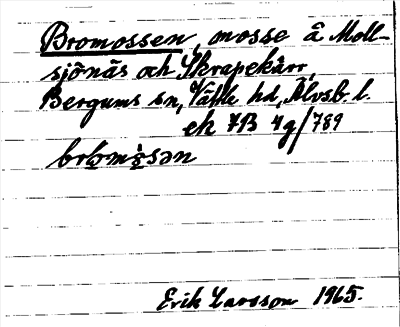 Bromossen, mosse å Moll-
sjönäs och Skrapekärr,
Bergums sn, Vättle hd, Älvsb. l.
ek 7B 4g/789
brωmòsən
Erik Larsson 1965.